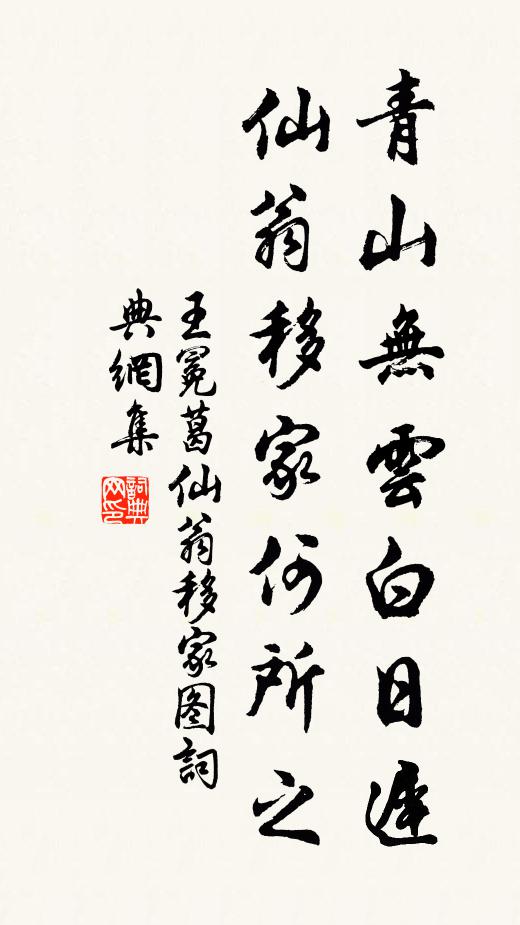 青山無雲白日遲
仙翁移家何所之
王冕葛仙翁移家图詞
典網集
詞典
网印